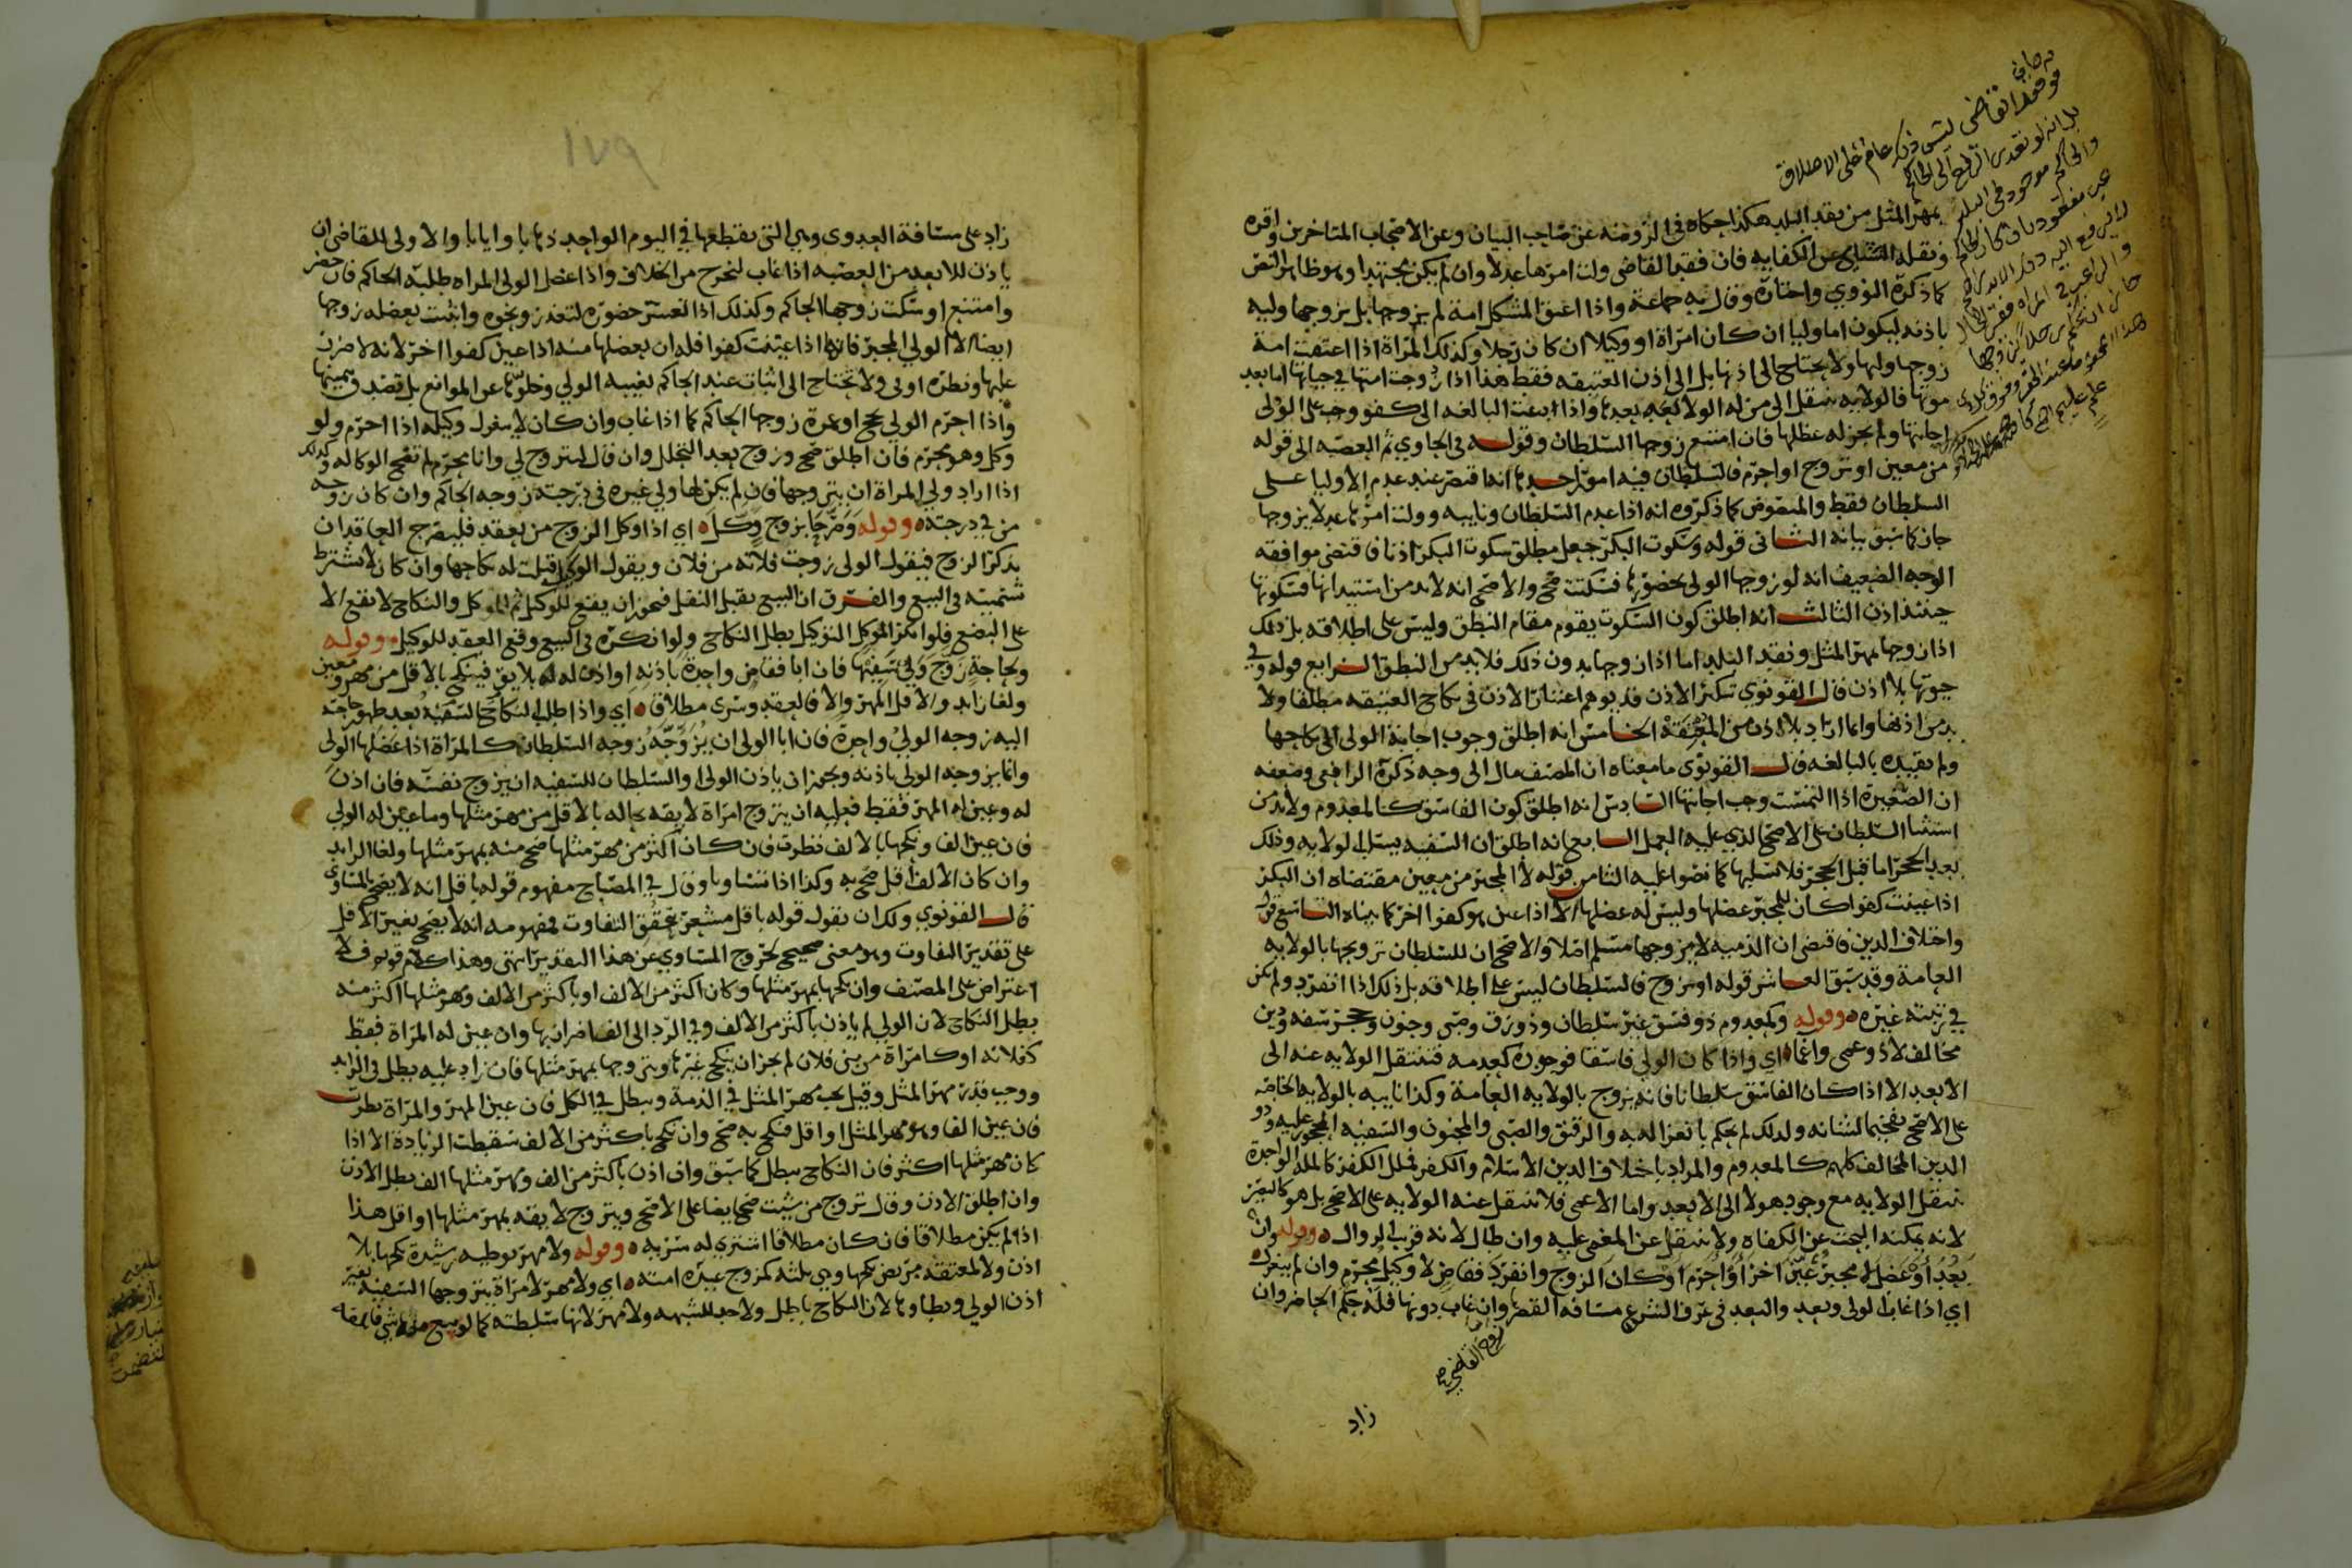 بمهر المثل من نقد البلد هكذا حكاه في الروضة عن صاحب البيان وعن الاصحاب المتاخرين واقره
ونقله عن الكفاية فان فقد القاضي ولت امرها عدلا وان لم يكن مجتهدا وهو ظاهر النص
كما ذكره النووي واختاره وقال به جماعة واذا اعتق المشكل امة لم يزوجها بل يزوجها وليه
باذنه ليكون اما وليا ان كان امرأة او وكيلا ان كان رجلا وكذلك المرأة اذا اعتقت امة
زوجها وليها ولا يحتاج الى اذنها بل الى اذن العتيقة فقط هذا اذا زوجت امتها في حياتها اما بعد
موتها فالولاية تنتقل الى من له الولا بعدها واذا دعت البالغة الى كفو وجب على الولي
اجابتها ولم يجز له عضلها فان امتنع زوجها السلطان وقوله في الحاوي ثم العصبة الى قوله
من معين او تزوج او احرم فالسلطان فيه امور احدها انه اقتصر عند عدم الاوليا على
السلطان فقط والمنصوص كما ذكروه انه اذا عدم السلطان ونايبه وولت امرها عدلا يزوجها
جاز كما سبق بيانه الثاني قوله وسكوت البكر جعل مطلق سكوت البكر اذنا فاقتضى موافقة
الوجه الضعيف انه لو زوجها الولي بحضورها فسكتت صح والاصح انه لا بد من استيذانها فسكوتها
حينئذ اذن الثالث انه اطلق كون السكوت يقوم مقام النطق وليس على اطلاقه بل ذلك
اذا زوجها بمهر المثل ونقد البلد اما اذا زوجها بدون ذلك فلا بد من النطق الرابع قوله وفي
حيوتها بلا اذن قال القونوي تنكير الاذن قد يوهم اعتبار الاذن في نكاح العتيقة مطلقا ولا
بد من اذنها وانما اراد بلا اذن من المعتقة الخامس انه اطلق وجوب اجابة الولي الى نكاحها
ولم يقيده بالبالغة قال القونوي ما معناه ان المصنف مال الى وجه ذكره الرافعي وضعفه
ان الصغيرة اذا التمست وجب اجابتها السادس انه اطلق كون الفاسق كالمعدوم ولا بد من
استثنا السلطان على الاصح الذي عليه العمل السابع انه اطلق ان السفيه يسلب الولاية وذلك
بعد الحجر اما قبل الحجر فلا تسلبها كما نصوا عليه الثامن قوله لا المجبر من معين مقتضاه ان البكر
اذا عينت كفوا كان للمجبر عضلها وليس له عضلها الا اذا عين هو كفوا اخر كما بيناه التاسع قوله
واختلاف الدين فاقتضى ان الذمية لا يزوجها مسلم اصلا والاصح ان للسلطان تزويجها بالولاية
العامة وقد سبق العاشر قوله او تزوج فالسلطان ليس على اطلاقه بل ذلك اذا انفرد ولم يكن
في رتبته غيره وقوله وكمعدوم ذو فسق غير سلطان وذو رق وصبى وجنون وحجر سفه ودين
مخالف لا ذو عمى واغما اي واذا كان الولي فاسقا فوجوده كعدمه فتنتقل الولاية عنه الى
الابعد الا اذا كان الفاسق سلطانا فانه يزوج بالولاية العامة وكذا نايبه بالولاية الخاصة
على الاصح تفخيما لشانه ولذلك لم يحكم بانعزاله به والرقيق والصبي والمجنون والسفيه المحجور عليه وذو
الدين المخالف كلهم كالمعدوم والمراد باختلاف الدين الاسلام والكفر فملل الكفر كالملة الواحدة
تنتقل الولاية مع وجود هولا الى الابعد واما الاعمى فلا تنتقل عنه الولاية على الاصح بل هو كالبصير
لانه يمكنه البحث عن الكفاة ولا تنتقل عن المغمى عليه وان طال لانه قريب الزوال وقوله وان
بعد او عضل لا مجبر عين اخر او احرم او كان الزوج وانفرد فقاض لا وكيل محرم وان لم ينعزل
اي اذا غاب الولي وبعد والبعد في عرف الشرع مسافة القصر وان غاب دونها فله حكم الحاضر وان
زوج القاضي
زاد
لشي ذكر عام على الاطلاق
بل انه لو تعذر الرفع الى الحاكم
والحاكم موجود في البلد
١٧٩
زاد على مسافة العدوى وهي التي يقطعها في اليوم الواحد ذهابا وايابا والاولى للقاضي ان
ياذن للابعد من العصبة اذا غاب لنخرج من الخلاف واذا عضل الولي المراة طلبه الحاكم فان حضر
وامتنع او سكت زوجها الحاكم وكذلك اذا تعسر حضوره لتعذر ونحوه واثبت بعضله زوجها
ايضا الا الولي المجبر فانها اذا عينت كفوا فله ان يعضلها منه اذا عين كفوا اخر لانه لا ضرر
عليها ونظره اولى ولا تحتاج الى اثبات عند الحاكم بغيبة الولي وخلوها عن الموانع بل تصدق بيمينها
واذا احرم الولي بحج او عمرة زوجها الحاكم كما اذا غاب وان كان لا ينعزل وكيله اذا احرم ولو
وكل وهو محرم فان اطلق صح وزوج بعد التحلل وان قال لتزوج لي وانا محرم لم تصح الوكالة وكذلك
اذا اراد ولي المراة ان يتزوجها فان لم يكن لها ولي غيره في درجته زوجه الحاكم وان كان زوجه
من في درجته وقوله وصرحا بزوج وكل اي اذا وكل الزوج من يعقد فليصرح العاقدان
بذكر الزوج فيقول الولي زوجت فلانة من فلان ويقول الوكيل قبلت له نكاحها وان كان لا تشترط
تسميته في البيع والفرق ان البيع يقبل النقل فيجوز ان يقع للوكيل ثم للموكل والنكاح لا يقع الا
على البضع فلو انكر الموكل التوكيل بطل النكاح ولو انكره في البيع وقع العقد للوكيل وقوله
ولحاجة زوج ولي سفيها فان ابا فقاض واحدة باذنه او اذن له له بلايق فينكح بالاقل من مهر ومعين
ولغا زايد والاقل المهر والا فالعقد وسرى مطلاق اي واذا طلب النكاح السفيه بعد ظهور حاجته
اليه زوجه الولي واحدة فان ابا الولي ان يزوجه زوجه السلطان كالمراة اذا عضلها الولي
وانما يزوجه الولي باذنه ويجوز ان ياذن الولي او السلطان للسفيه ان يزوج نفسه فان اذن
له وعين له المهر فقط فعليه ان يتزوج امراة لايقة بحاله بالاقل من مهر مثلها وما عين له الولي
فان عين الف ونكحها بالالف نظرت فان كان اكثر من مهر مثلها صح منه بمهر مثلها ولغا الزايد
وان كان الالف اقل صح به وكذا اذا تساويا وقال في المصباح مفهوم قوله باقل انه لا يصح بالمساوي
قال القونوي ولك ان تقول قوله باقل مشعر بتحقق التفاوت فمفهومه انه لا يصح بغير الاقل
على تقدير التفاوت وهو معنى صحيح لخروج المساوي عن هذا التقدير انتهى وهذا كلام قوي فلا
اعتراض على المصنف وان نكحها بمهر مثلها وكان اكثر من الالف او باكثر من الالف ومهر مثلها اكثر منه
بطل النكاح لان الولي لم ياذن باكثر من الالف وفي الرد الى الف اضرار بها وان عين له المراة فقط
كفلانة او كامراة من بني فلان لم يجز ان ينكح غيرها ويتزوجها بمهر مثلها فان زاد عليه بطل في الزايد
ووجب قدر مهر المثل وقيل يجب مهر المثل في الذمة ويبطل في الكل فان عين المهر والمراة نظرت
فان عين الفا وهو مهر المثل او اقل فنكح به صح وان نكح باكثر من الالف سقطت الزيادة الا اذا
كان مهر مثلها اكثر فان النكاح يبطل كما سبق وان اذن باكثر من الف ومهر مثلها الف بطل الاذن
وان اطلق الاذن وقال تزوج من شيت صح ايضا على الاصح ويتزوج لايقة بمهر مثلها او اقل هذا
اذا لم يكن مطلاقا فان كان مطلاقا اشترى له سرية وقوله ولا مهر بوطيه رشيدة نكحها بلا
اذن ولا لمعتقة مريض نكحها وهي ثلثه كمزوج عبده امته اي ولا مهر لامراة يتزوجها السفيه بغير
اذن الولي ويطاوها لان النكاح باطل ولا حد للشبهة ولا مهر لانها سلطته كما لو بيع منه شي فاتلفه